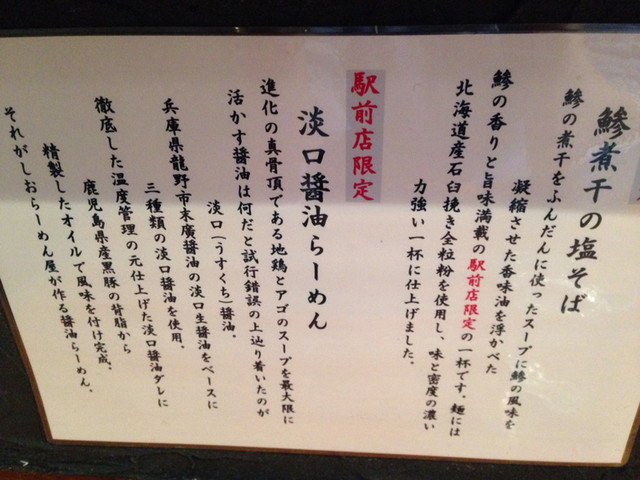 鯵煮干の塩そば
鯵の煮干をふんだんに使ったスープに鯵の風味を
凝縮させた香味油を浮かべた
鯵の香りと旨味満載の駅前店限定の一杯です。麺には
北海道産石臼挽き全粒粉を使用し、味と密度の濃い
力強い一杯に仕上げました。
駅前店限定
淡口醤油らーめん
進化の真骨頂である地鶏とアゴのスープを最大限に
活かす醤油は何だと試行錯誤の上辿り着いたのが
淡口(うすくち)醤油。
兵庫県龍野市末廣醤油の淡口生醤油をベースに
三種類の淡口醤油を使用。
徹底した温度管理の元仕上げた淡口醤油ダレに
鹿児島県産黒豚の背脂から
精製したオイルで風味を付け完成。
それがしおらーめん屋が作る醤油らーめん。